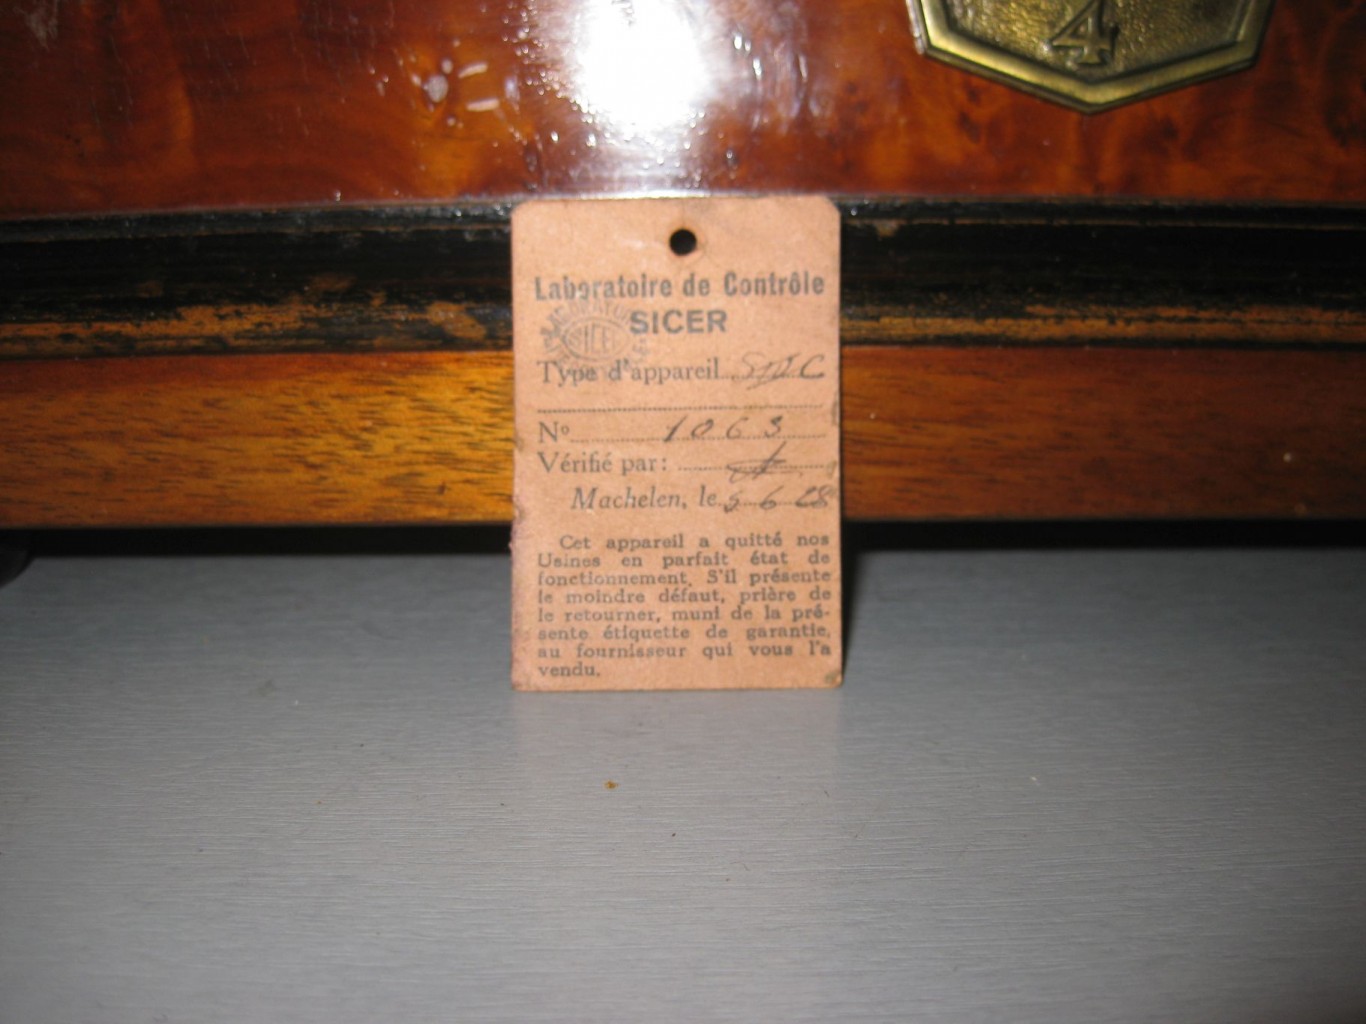 4
Laboratoire de Contrôle
SICER
Type d'appareil
Nº 1063
Vérifié par:
Machelen, le 5 6 28
Cet appareil a quitté nos
Usines en parfait état de
fonctionnement. S'il présente
le moindre défaut, prière de
le retourner, muni de la pré-
sente étiquette de garantie,
au fournisseur qui vous l'a
vendu.